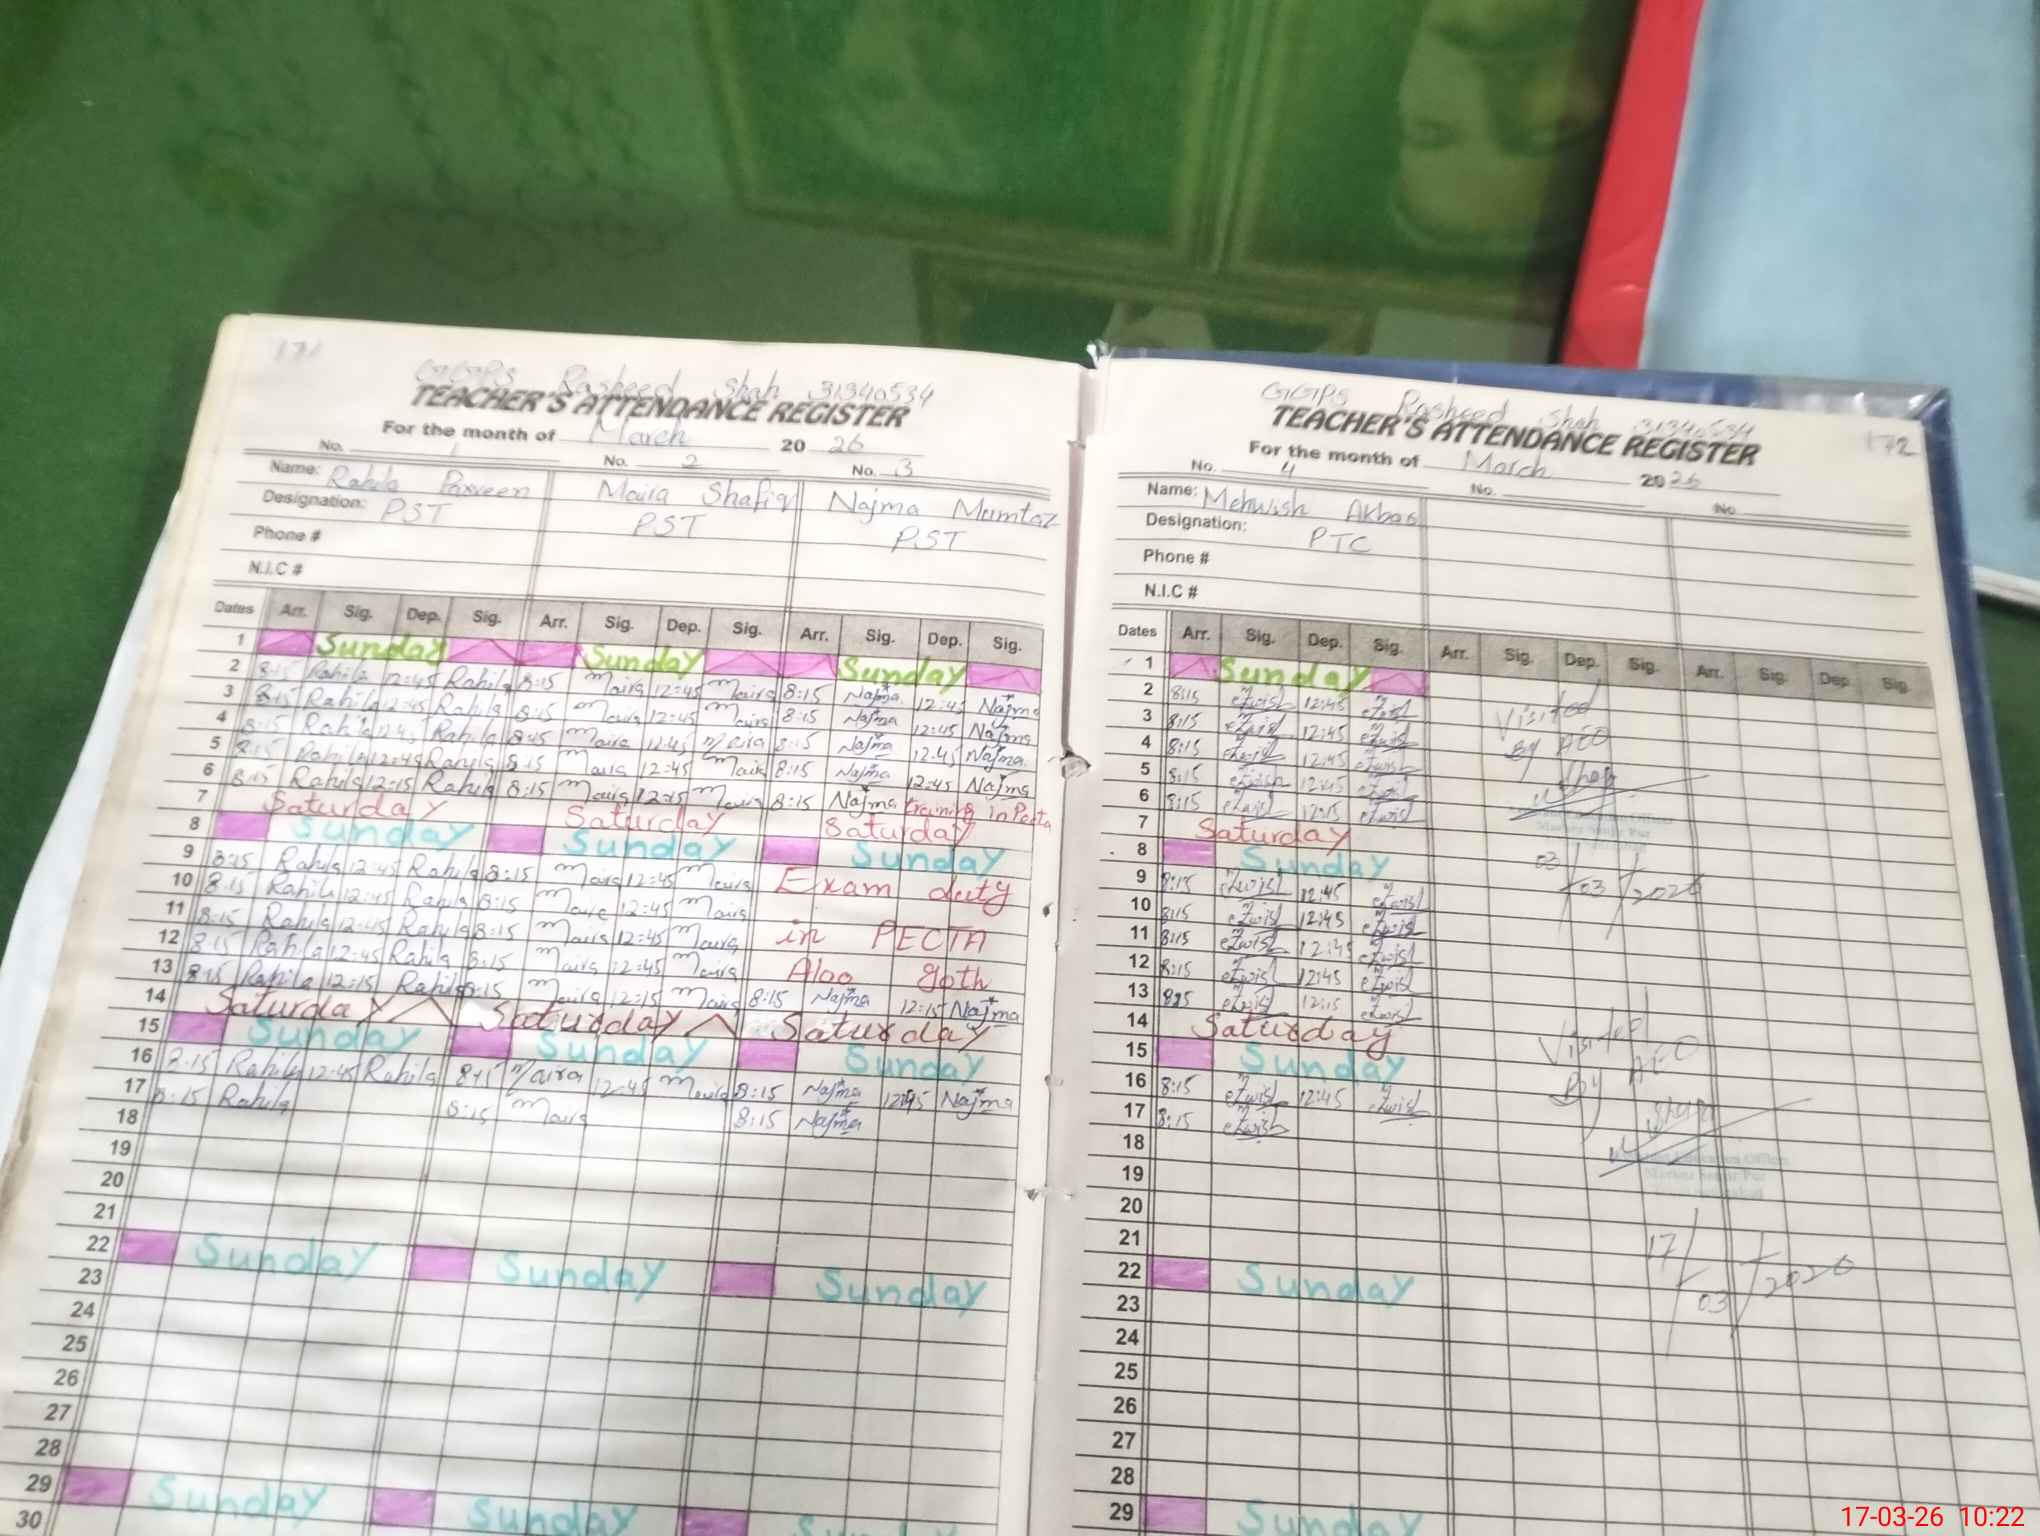 171
GGPS Rasheed Shah 31340534
TEACHER'S ATTENDANCE REGISTER
For the month of March 20 26
No. 1 No. 2 No. 3
Name: Rahila Parveen Maira Shafiq Najma Mumtaz
Designation: PST PST PST
Phone #
N.I.C #
Dates Arr. Sig. Dep. Sig. Arr. Sig. Dep. Sig. Arr. Sig. Dep. Sig.
1 Sunday Sunday Sunday
2 8:15 Rahila 12:45 Rahila 8:15 Maira 12:45 Maira 8:15 Najma 12:45 Najma
3 8:15 Rahila 12:45 Rahila 8:15 Maira 12:45 Maira 8:15 Najma 12:45 Najma
4 8:15 Rahila 12:45 Rahila 8:45 Maira 12:45 Maira 8:15 Najma 12:45 Najma
5 8:15 Rahila 12:45 Rahila 8:15 Maira 12:45 Maira 8:15 Najma 12:45 Najma
6 8:15 Rahila 12:15 Rahila 8:15 Maira 12:15 Maira 8:15 Najma training in Pecta
7 Saturday Saturday Saturday
8 Sunday Sunday Sunday
9 8:15 Rahila 12:45 Rahila 8:15 Maira 12:45 Maira Exam duty
10 8:15 Rahila 12:45 Rahila 8:15 Maira 12:45 Maira
11 8:15 Rahila 12:45 Rahila 8:15 Maira 12:45 Maira in PECTA
12 8:15 Rahila 12:45 Rahila 8:15 Maira 12:45 Maira Alao goth
13 8:15 Rahila 12:15 Rahila 8:15 Maira 12:15 Maira 8:15 Najma 12:15 Najma
14 Saturday Saturday Saturday
15 Sunday Sunday Sunday
16 8:15 Rahila 12:45 Rahila 8:15 Maira 12:45 Maira 8:15 Najma 12:45 Najma
17 8:15 Rahila 8:15 Maira 8:15 Najma
18
19
20
21
22 Sunday Sunday Sunday
23
24
25
26
27
28
29 Sunday Sunday
30
172
GGPS Rasheed Shah 31340534
TEACHER'S ATTENDANCE REGISTER
For the month of March 2026
No. 4 No. No.
Name: Mehwish Akbar
Designation: PTC
Phone #
N.I.C #
Dates Arr. Sig. Dep. Sig. Arr. Sig. Dep. Sig. Arr. Sig. Dep. Sig.
1 Sunday
2 8:15 12:45
3 8:15 12:45
4 8:15 12:45
5 8:15 12:45
6 8:15 12:15
7 Saturday
8 Sunday
9 8:15 12:45
10 8:15 12:45
11 8:15 12:45
12 8:15 12:45
13 8:15 12:15
14 Saturday
15 Sunday
16 8:15 12:45
17 8:15
18
19
20
21
22 Sunday
23
24
25
26
27
28
29 Sunday
Visited
By AEO
03/03/2026
Visited
By AEO
17/03/2026
17-03-26 10:22